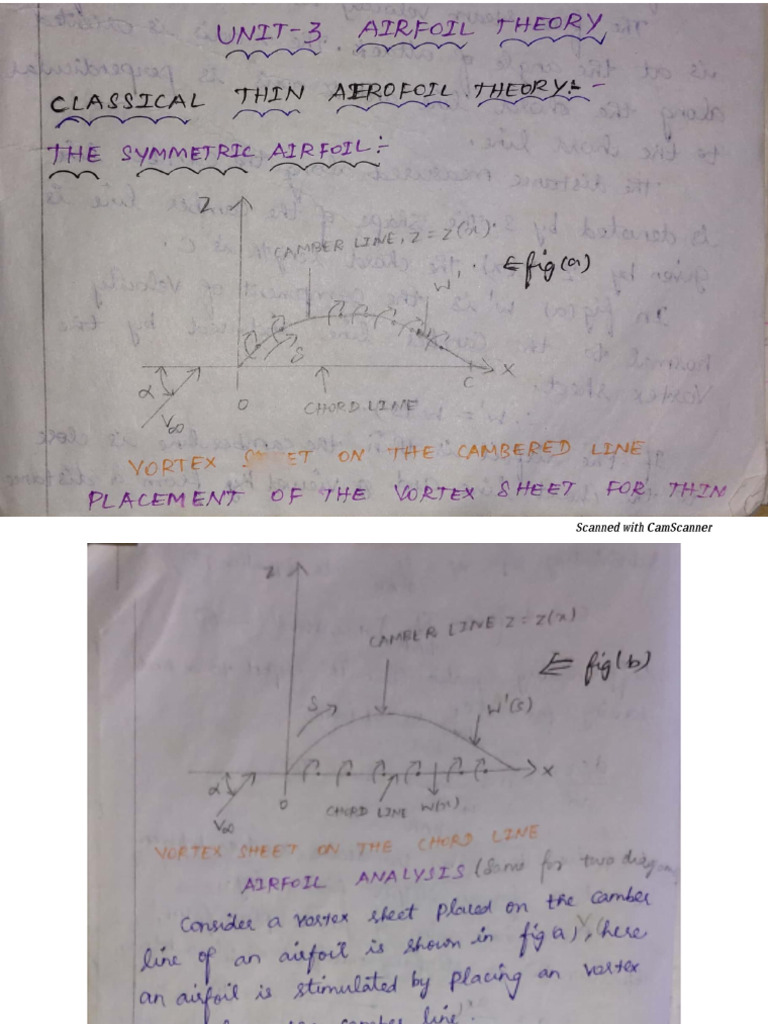 UNIT-3 AIRFOIL THEORY
CLASSICAL THIN AEROFOIL THEORY:-
THE SYMMETRIC AIRFOIL:-
Z
CAMBER LINE, Z = Z(x)
W'
⇐ fig(a)
S
α
V∞
O
CHORD LINE
C
X
VORTEX SHEET ON THE CAMBERED LINE
PLACEMENT OF THE VORTEX SHEET FOR THIN
Scanned with CamScanner
Z
CAMBER LINE Z = Z(x)
⇐ fig(b)
S
W'(s)
α
V∞
O
CHORD LINE
W(x)
X
VORTEX SHEET ON THE CHORD LINE
AIRFOIL ANALYSIS (Same for two diagram
Consider a vortex sheet placed on the camber
line of an airfoil is shown in fig(a), here
an airfoil is stimulated by placing an vortex
camber line.